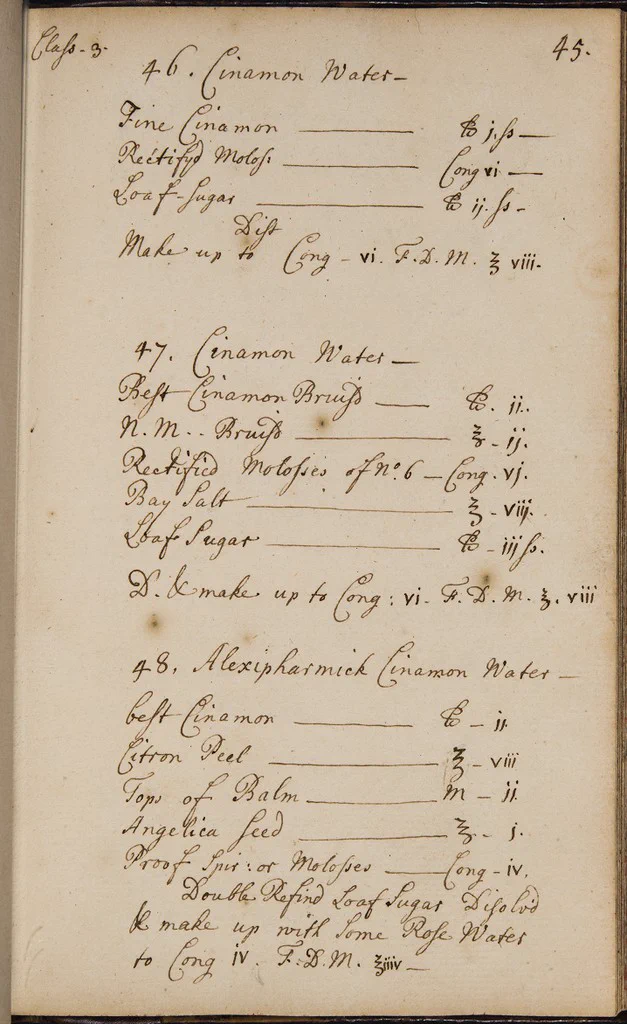 Class - 3.
45.
46. Cinamon Water —
Fine Cinamon ——— ℔ j. ss —
Rectifyd Moloss: ——— Cong vi —
Loaf-Sugar ——— ℔ ij. ss -
Dist
Make up to Cong - vi. F. D. M. ℥ viii.
47. Cinamon Water —
Best Cinamon Bruisd —— ℔. ii.
N. M. - Bruisd ——— ℥ - ij.
Rectified Molosses of No. 6 — Cong. vj.
Bay Salt ——— ℥ - viij.
Loaf Sugar ——— ℔ - iij ss.
D. & make up to Cong: vi. F. D. M. ℥. viii
48. Alexipharmick Cinamon Water —
best Cinamon ——— ℔ - ii
Citron Peel ——— ℥ - viii
Tops of Balm ——— M - ij
Angelica Seed ——— ℥ - j.
Proof Spir: or Molosses —— Cong - iv.
Double Refind Loaf Sugar Disolvd
& make up with some Rose Water
to Cong iv. F. D. M. ℥iiiv —